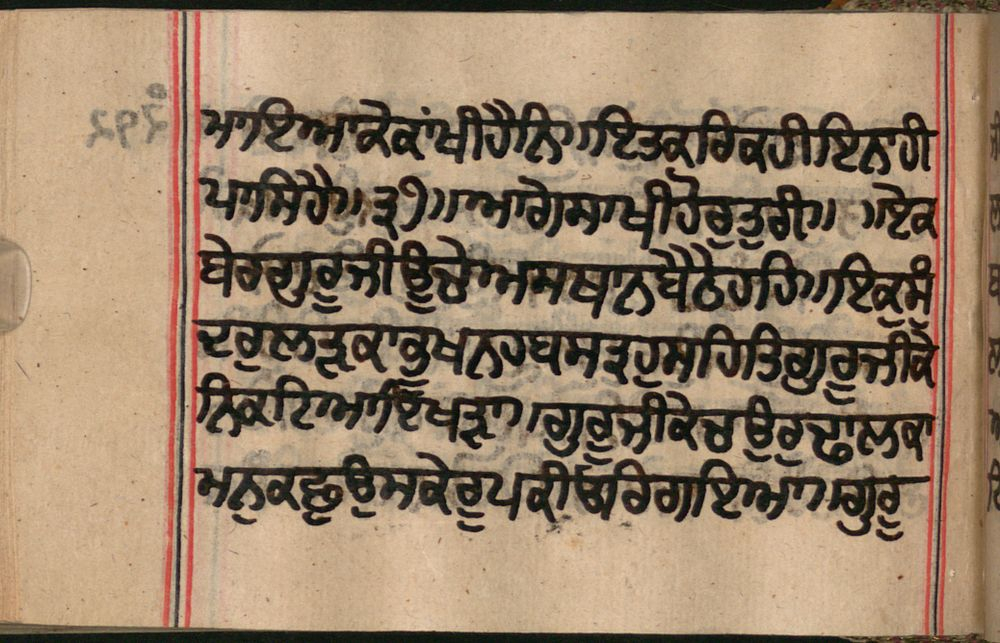 ਆਇਆਕੇਕਾਂਖੀਹੈਨਿ॥ਇਤਕਰਿਕਹੀਇਨਾਹੀ
ਪਾਸਿਹੈ॥੩੧॥ਆਗੇਸਾਖੀਹੋਰੁਤੁਰੀ॥ ॥ਇਕ
ਬੇਰਗੁਰੂਜੀਊਚੇਅਸਥਾਨਬੈਠੇਹਹਿ॥ਇਕੁਸੁੰ
ਦਰੁਲੜਕਾਭੂਖਨਹਬਸਤ੍ਰਹੁਸਹਿਤਿਗੁਰੂਜੀਕੈ
ਨਿਕਟਿਆਇਖੜਾ॥ਗੁਰੂਜੀਕੇਚਉਰੁਢਾਲਕਾ
ਮਨੁਕਛੁਉਸਕੇਰੂਪਕੀਓਰਿਗਇਆ॥ਗੁਰੂ